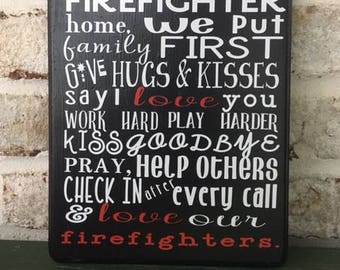 FIREFIGHTER
home, We Put
family FIRST
GIVE HUGS & KISSES
say I love you
WORK HARD PLAY HARDER
kiss GOODBYE
PRAY, Help Others
CHECK IN after every call
& love our
firefighters.